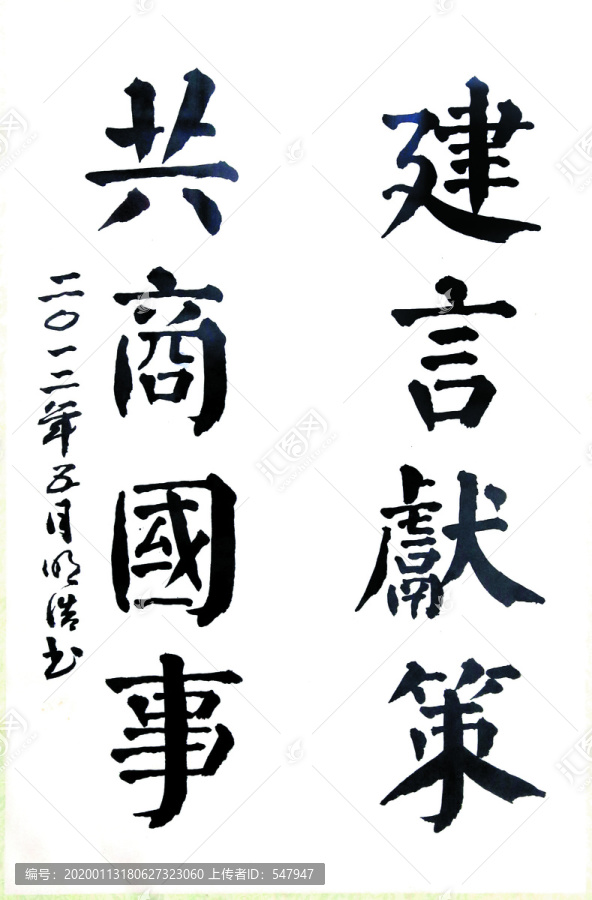 建言獻策
共商國事
二〇一二年五月明浩书
汇图网
编号：20200113180627323060 上传者ID：547947